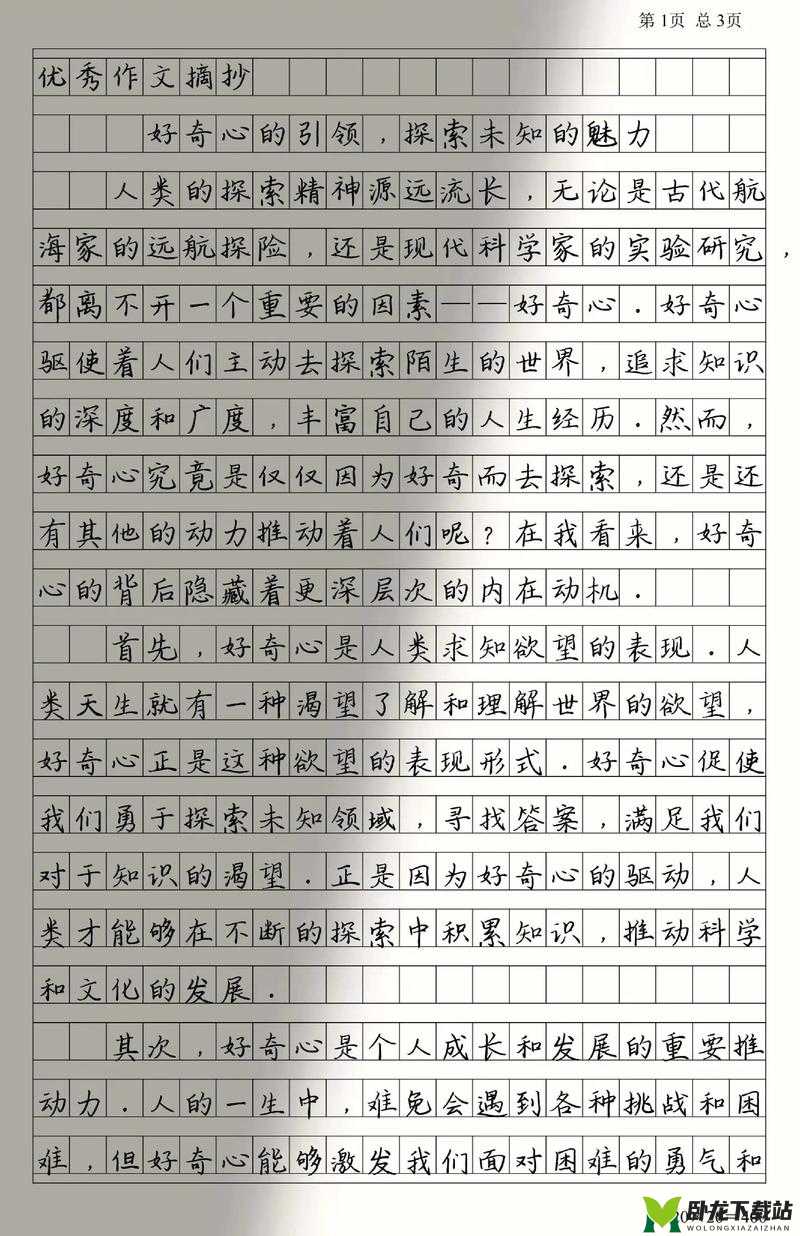 第1页 总3页
优秀作文摘抄
好奇心的引领，探索未知的魅力
人类的探索精神源远流长，无论是古代航
海家的远航探险，还是现代科学家的实验研究，
都离不开一个重要的因素——好奇心．好奇心
驱使着人们主动去探索陌生的世界，追求知识
的深度和广度，丰富自己的人生经历．然而，
好奇心究竟是仅仅因为好奇而去探索，还是还
有其他的动力推动着人们呢？在我看来，好奇
心的背后隐藏着更深层次的内在动机．
首先，好奇心是人类求知欲望的表现．人
类天生就有一种渴望了解和理解世界的欲望，
好奇心正是这种欲望的表现形式．好奇心促使
我们勇于探索未知领域，寻找答案，满足我们
对于知识的渴望．正是因为好奇心的驱动，人
类才能够在不断的探索中积累知识，推动科学
和文化的发展．
其次，好奇心是个人成长和发展的重要推
动力．人的一生中，难免会遇到各种挑战和困
难，但好奇心能够激发我们面对困难的勇气和
卧龙下载站
WOLONGXIAZAIZHAN